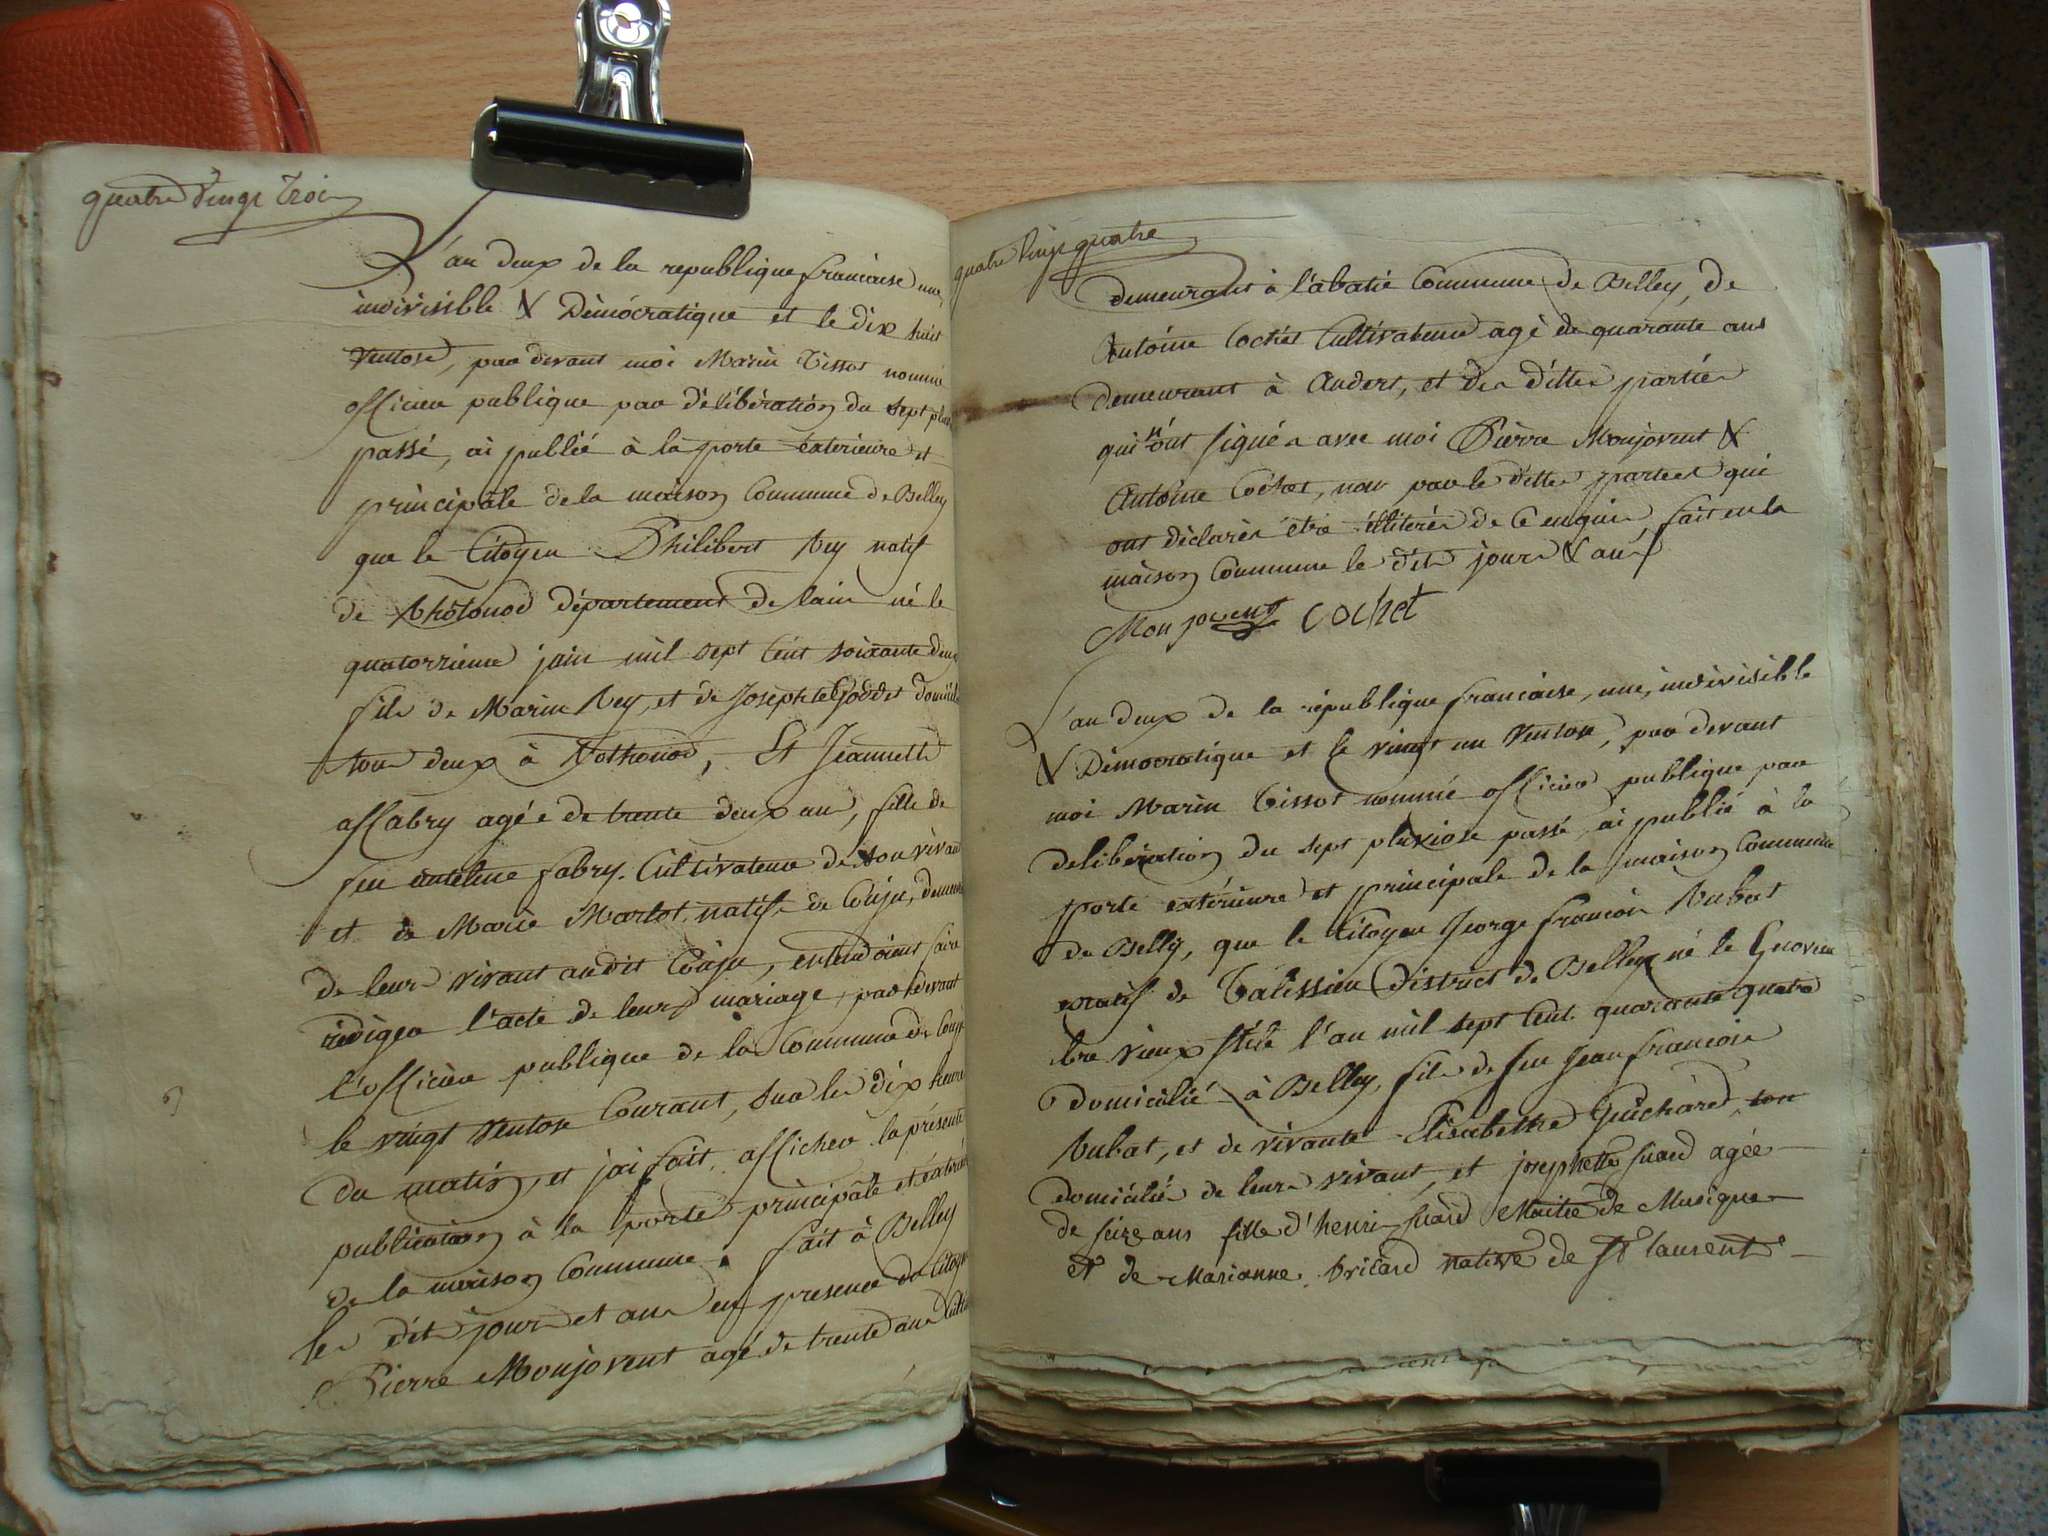 quatre vingt trois
L'an deux de la republique francaise une,
indivisible & Démócratique et le dix huit
ventose, par devant moi Marin Tissot nommé
officier publique par délibération du sept pluv
passé, ai publié à la porte exterieure et
principale de la maison Commune de Belley
que le Citoyen Philibert Rey natif
de Rhótonod département de lain né le
quatorzieme juin mil sept Cent soixante deux
fils de Marin Rey, et de Josephte Goddet domicil
tous deux à Rothonod, Et Jeannette
affabry agée de trente deux ans, fille de
feu antelme fabry. Cultivateur de son vivant
et de Marie Marlot, natifs de Conju, demeur
de leur vivant audit Conju, entendoient faire
rédiger l'acte de leurs mariage, par devant
l'officier publique de la Commune de Conju
le vingt ventose Courant, sur les dix heures
du matin, et jai fait, afficher la présente
publication à la porte principale et exterieu
de la maison Commune. fait à Belley
les dits jour et an en presence du Citoyen
Pierre Monjovent agé de trente ans
quatre vingt quatre
demeurant à l'abatie Commune de Belley, de
Antoine Cochet Cultivateur agé de quarante ans
demeurant à Andert, et des dittes parties
qui n'ont signés avec moi Pierre Monjovent &
Antoine Cochet, non par le dittes parties qui
ont déclarés étre illiterés de Ce enquis, fait en la
maison Commune le dits jours & an
Monjovent Cochet
L'an deux de la république francaise, une, indivisible
& Démocratique et le vingt un ventose, par devant
moi Marin Tissot nommé officier publique par
deliberation du sept pluviose passé, ai publié à la
porte extérieure et principale de la maison Commune
de Belley, que le Citoyen George francois Rubat
natif de Talissieu District de Belley né le 9 novem
bre vieux stile l'an mil sept Cent quarante quatre
domicilié à Belley, fils de feu Jean francois
Rubat, et de vivante Elisabethe Guichard, son
domiciliés de leurs vivant, et josephette suard agée
de seize ans fille d'henri suard Maitre de Musique
et de Marianne bricard native de St laurent